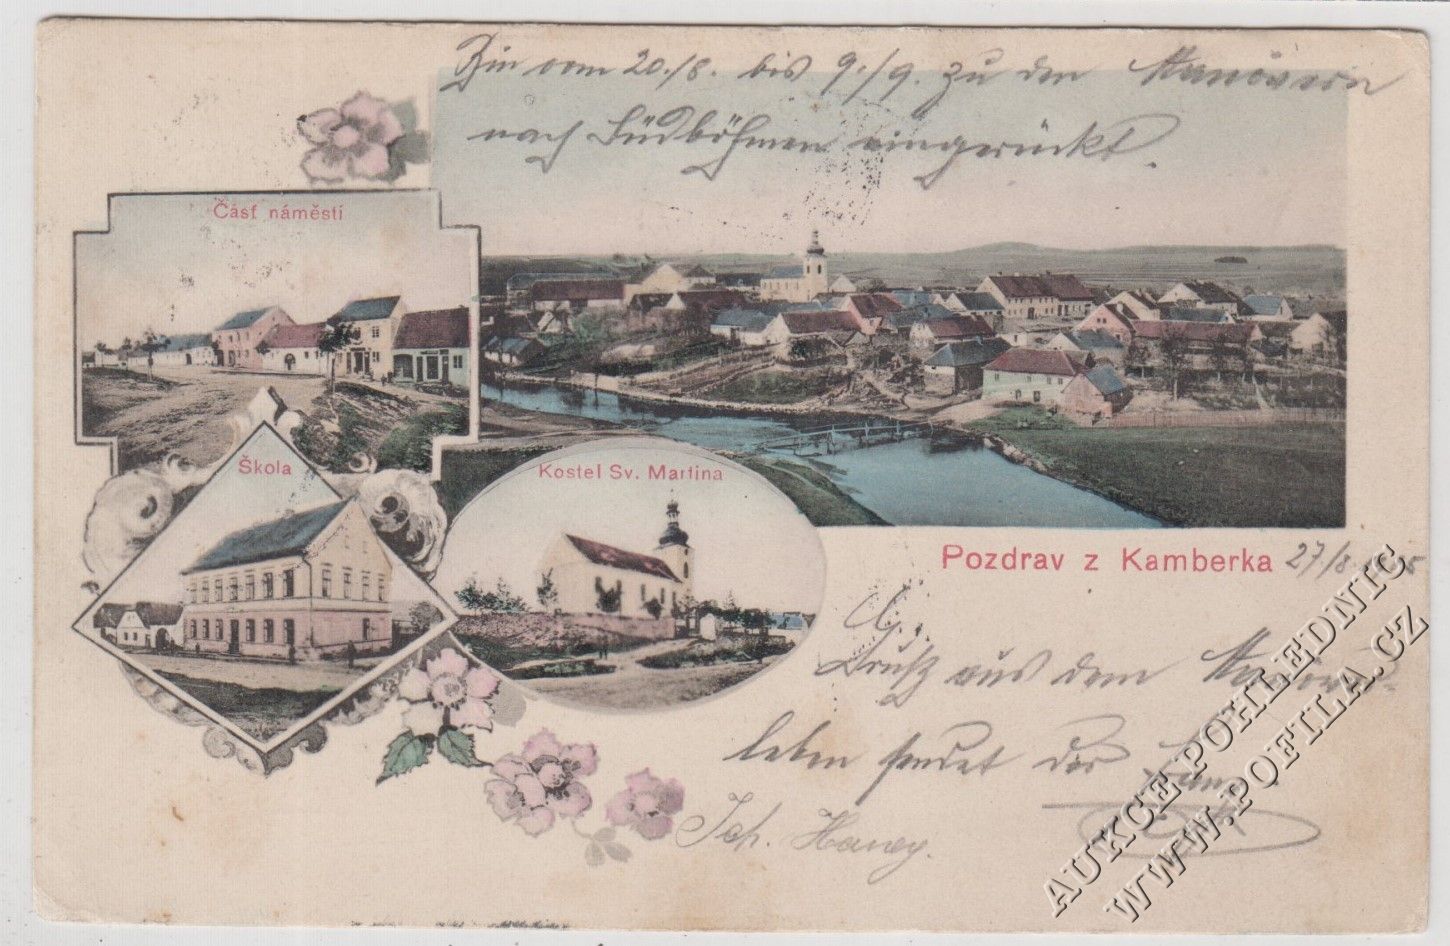 Bin vom 20./8. bis 9./9. zu den Manövern
nach Südböhmen eingerückt.
Část náměstí
Škola
Kostel Sv. Martina
Pozdrav z Kamberka
27/8
Gruß aus dem
leben sendet
Joh.
AUKCE POHLEDNIC
WWW.POFILA.CZ